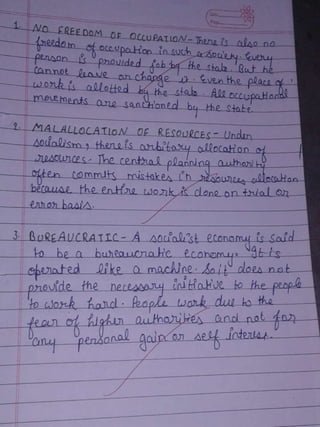 1. NO FREEDOM OF OCCUPATION - There is also no
freedom of occupation in such a society. Every
person is provided job by the state. But he
cannot leave or change it. Even the place of
work is allotted by the state. All occupational
movements are sanctioned by the state.
2. MALALLOCATION OF RESOURCES - Under
socialism, there is arbitrary allocation of
resources. The central planning authority
often commits mistakes in resources allocation
because the entire work is done on trial or
error basis.
3. BUREAUCRATIC - A socialist economy is said
to be a bureaucratic economy. It is
operated like a machine. So it does not
provide the necessary initiative to the people
to work hard. People work due to the
fear of higher authorities and not for
any personal gain or self interest.